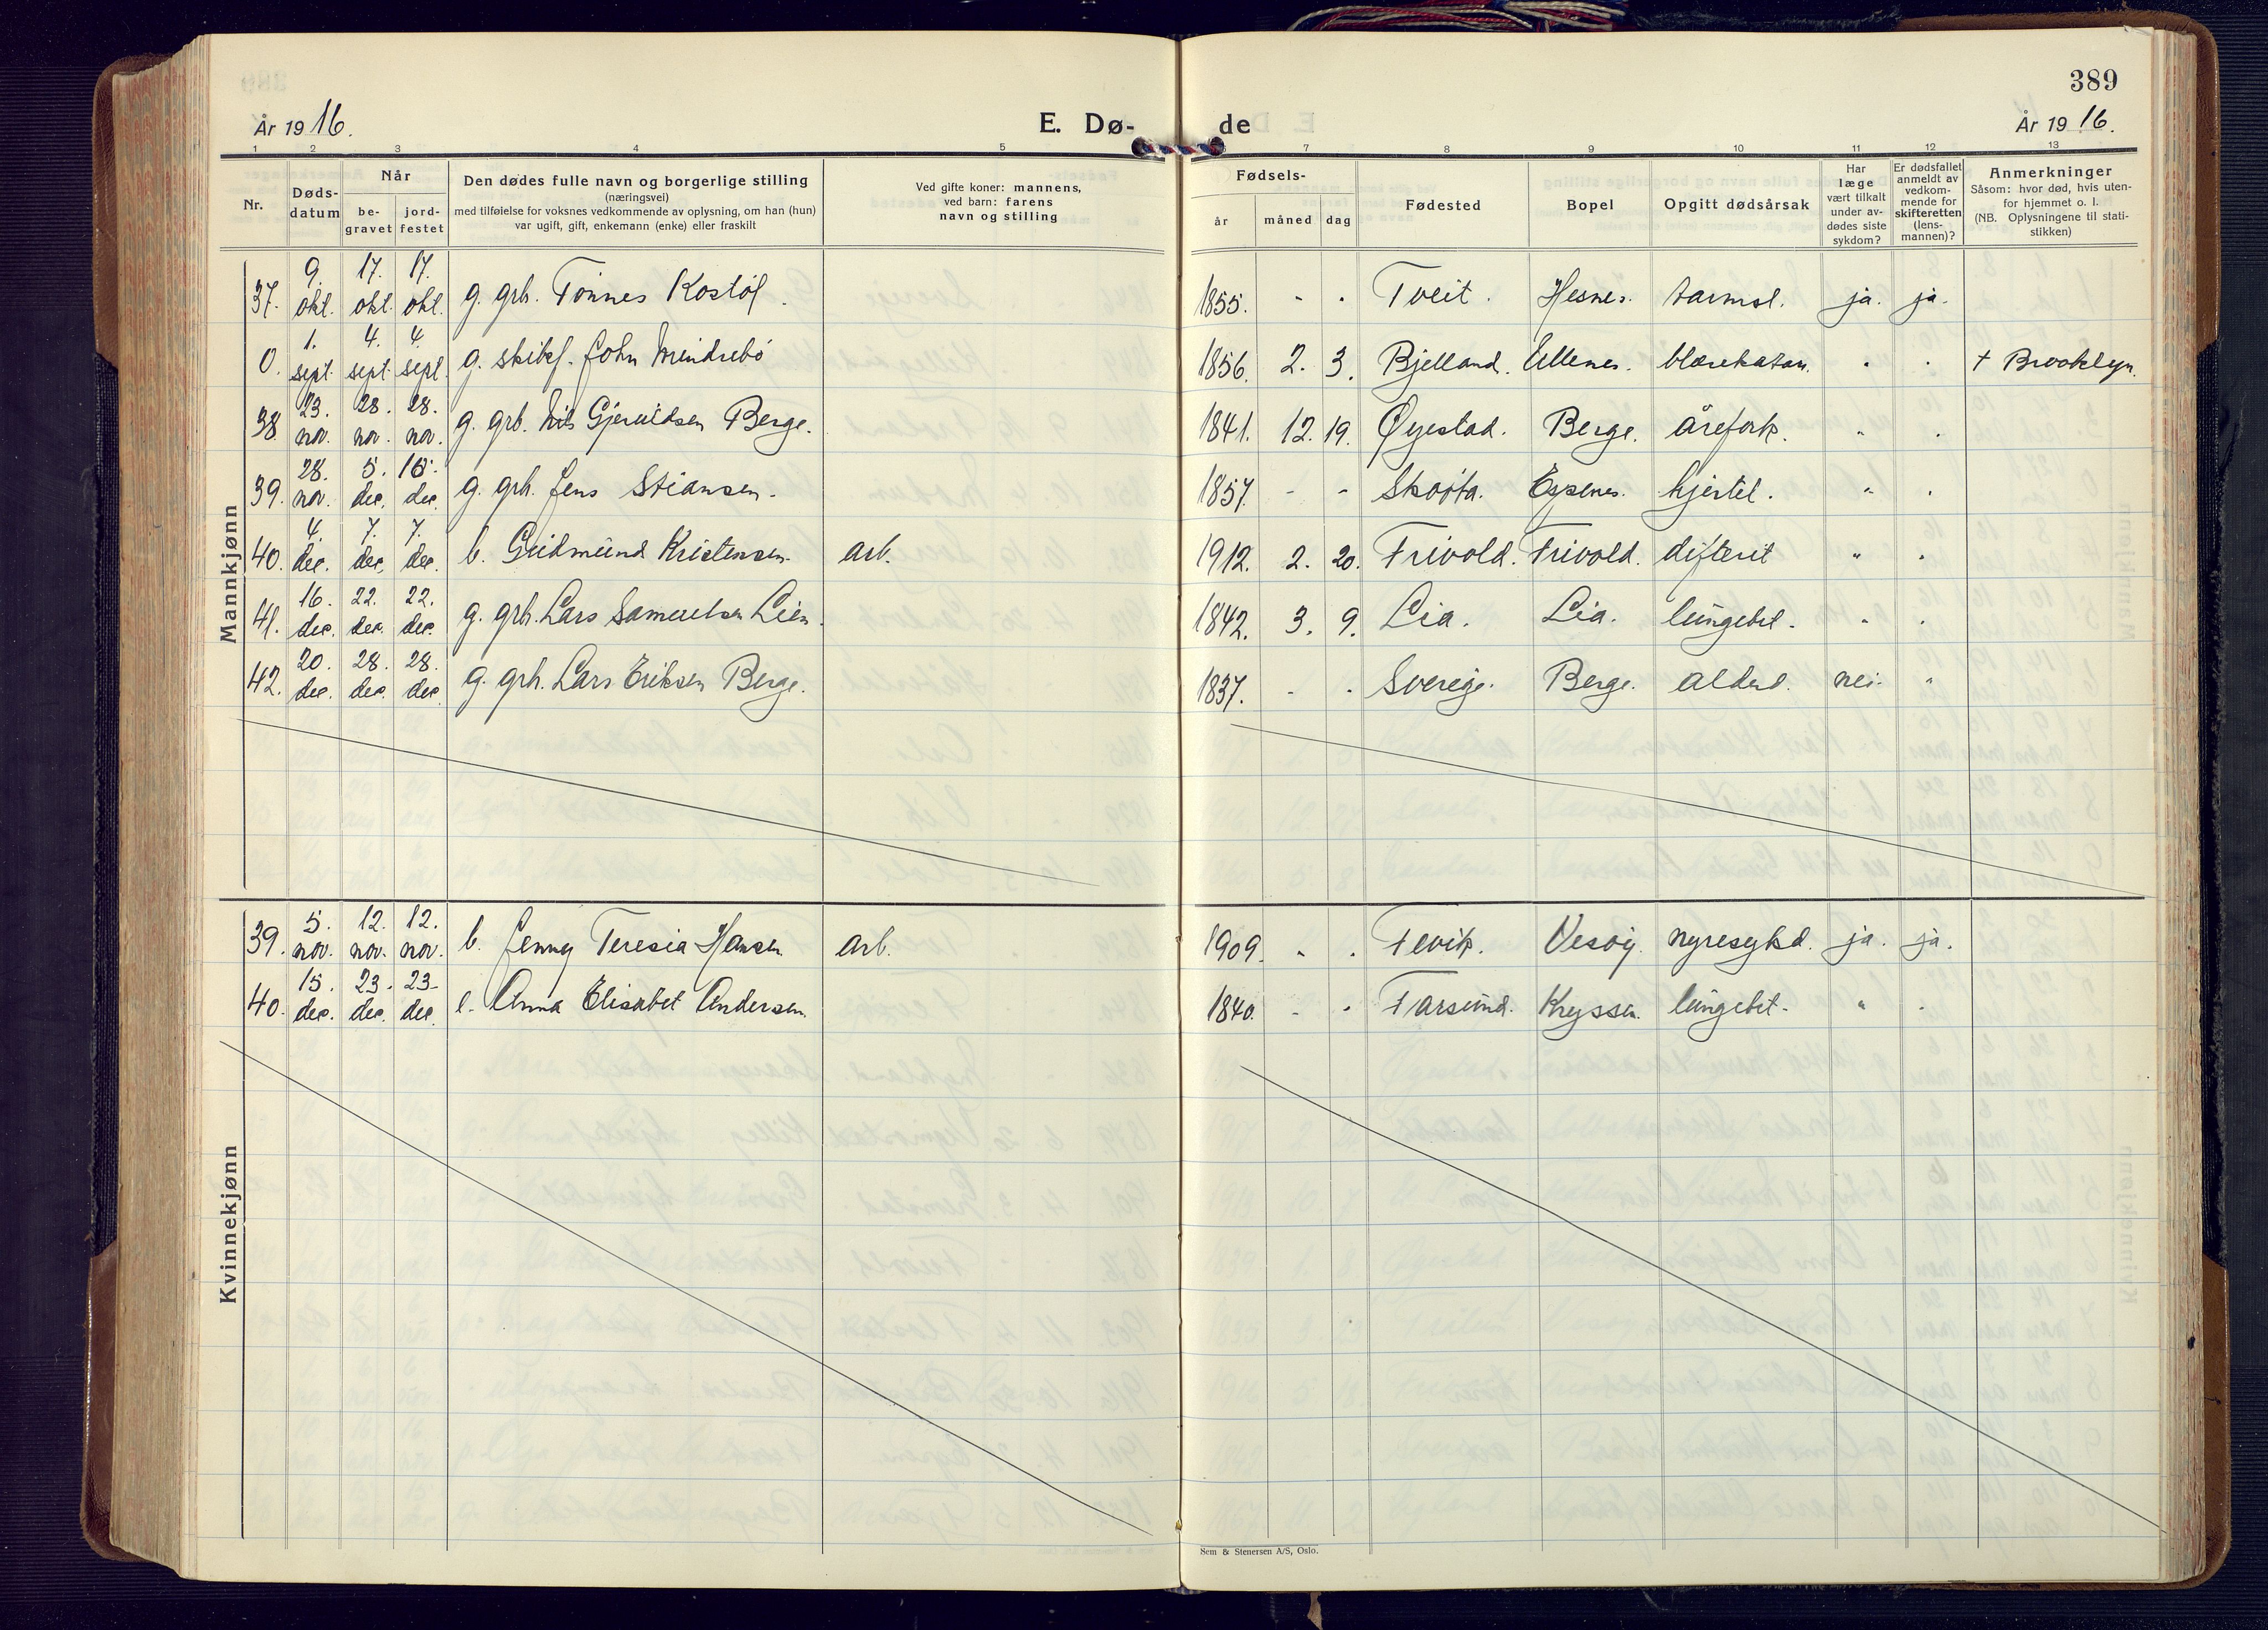 389
År 1916.
E. Dø-
de
År 1916.
1 2 3 4 5 6 7 8 9 10 11 12 13
Nr.
Døds-
datum
Når
be-
gravet
jord-
festet
Den dødes fulle navn og borgerlige stilling
(næringsvei)
med tilføielse for voksnes vedkommende av oplysning, om han (hun)
var ugift, gift, enkemann (enke) eller fraskilt
Ved gifte koner: mannens,
ved barn: farens
navn og stilling
Fødsels-
år måned dag
Fødested
Bopel
Opgitt dødsårsak
Har
læge
vært tilkalt
under av-
dødes siste
sykdom?
Er dødsfallet
anmeldt av
vedkom-
mende for
skifteretten
(lens-
mannen)?
Anmerkninger
Såsom: hvor død, hvis uten-
for hjemmet o. l.
(NB. Oplysningene til stati-
stikken)
Mannkjønn
37. 9. okt. 17. okt. 17. okt. g. grb. Tønnes Kostøl. 1855. - - Tveit. Hesnes. tarmsl. ja. ja.
0. 1. sept. 4. sept. 4. sept. g. skibsf. John Mindrebö 1856. 2. 3. Bjelland. Ullenes. blærekatar. " " + Brooklyn.
38 23. nov. 28. nov. 28. nov. g. grb. Nils Gjeruldsen Berge. 1841. 12. 19. Øyestad. Berge. årefork. " "
39. 28. nov. 5. dec. 15. dec. g. grb. Jens Stiansen. 1857. - - Espenes. hjertel. " "
40. 4. dec. 7. dec. 7. dec. b. Gudmund Kristensen. arb. 1912. 2. 20. Frivold. Frivold. difterit " "
41. 16. dec. 22. dec. 22. dec. g. grb. Lars Samuelsen Lien. 1842. 3. 9. Lia. Lia. lungebet. " "
42. 20. dec. 28. dec. 28. dec. g. grb. Lars Eriksen Berge. 1837. - - Sverige. Berge. alderd. nei. "
Kvinnekjønn
39. 5. nov. 12. nov. 12. nov. b. Jenny Teresia Hansen arb. 1909. - - Fevik. Vesøy. nyresykd. ja. ja.
40. 15. dec. 23. dec. 23. dec. e. Anna Elisabet Andersen. 1840. - - Farsund. Kryssen. lungebet. " "
Sem & Stenersen A/S, Oslo.